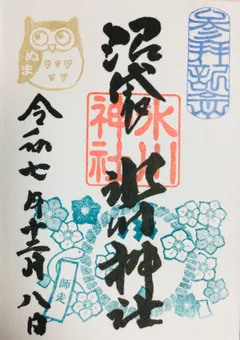 参拝記念
沼袋 氷川神社
氷川
神社
令和七年十二月八日
師走
ぬま